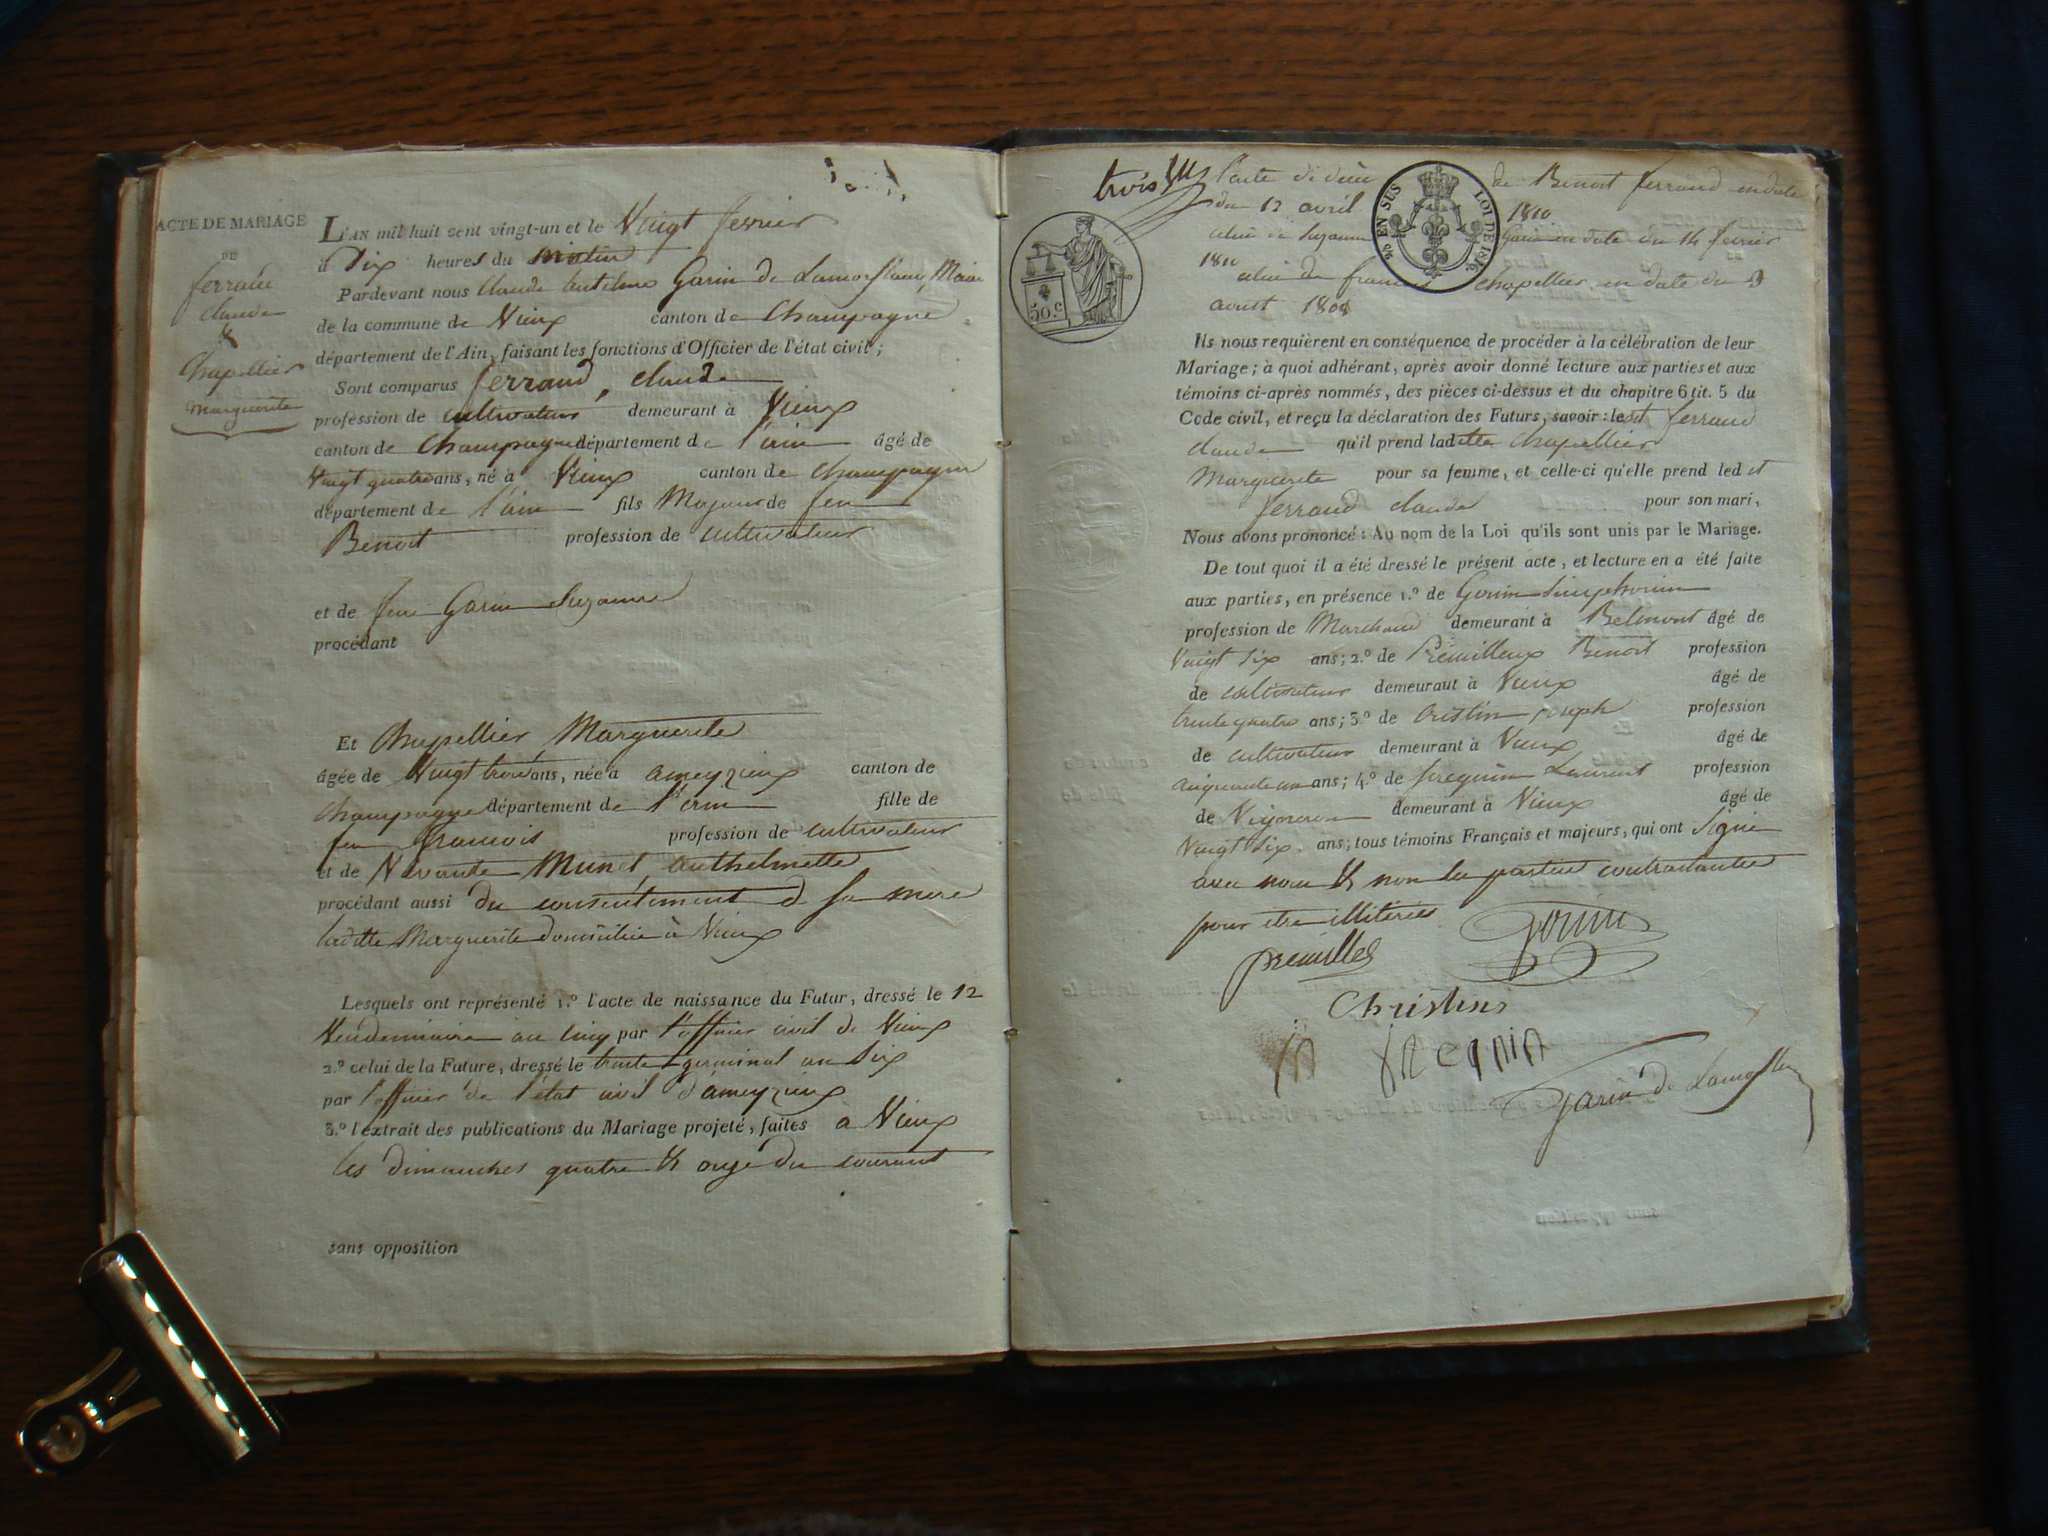 ACTE DE MARIAGE
DE
ferrand
claude
&
Chapellier
Marguerite
L'AN mil huit cent vingt-un et le Vingt fevrier
à Dix heures du matin
Pardevant nous Claude Antelme Garin de Lamorflanc, Maire
de la commune de Vieux canton de Champagne
département de l'Ain, faisant les fonctions d'Officier de l'état civil ;
Sont comparus ferrand, claude
profession de cultivateur demeurant à Vieux
canton de Champagne département de l'ain âgé de
Vingt quatre ans, né à Vieux canton de Champagne
département de l'ain fils Majeur de feu
Benoit profession de cultivateur
et de feue Garin Suzanne
procédant
Et Chapellier, Marguerite
âgée de Vingt trois ans, née à ameyzieux canton de
Champagne département de l'ain fille de
feu francois profession de cultivateur
et de Munet, anthelmette
procédant aussi du consentement d sa mere
laditte Marguerite domiciliée à Vieux
Lesquels ont représenté 1.º l'acte de naissance du Futur, dressé le 12
Vendemiaire an cinq par l'officier civil de Vieux
2.º celui de la Future, dressé le trente germinal an Six
par l'officier de l'état civil d'ameyzieux
3.º l'extrait des publications du Mariage projeté, faites a Vieux
les dimanches quatre & onze du courant
sans opposition
trois
50.c
EN SUS LOI DE 1816
l'acte de décès de Benoit ferrand en date
du 12 avril 1810
celui de Suzanne Garin en date du 14 fevrier
1811
celui de francois Chapellier en date du 3
aoust 1808
Ils nous requièrent en conséquence de procéder à la célébration de leur
Mariage ; à quoi adhérant, après avoir donné lecture aux parties et aux
témoins ci-après nommés, des pièces ci-dessus et du chapitre 6 tit. 5 du
Code civil, et reçu la déclaration des Futurs, savoir : ledt ferrand
claude qu'il prend laditte Chapellier
Marguerite pour sa femme, et celle-ci qu'elle prend led et
ferrand claude pour son mari,
Nous avons prononcé : Au nom de la Loi qu'ils sont unis par le Mariage.
De tout quoi il a été dressé le présent acte, et lecture en a été faite
aux parties, en présence 1.º de Gorin Simphorien
profession de Marchand demeurant à Belmont âgé de
Vingt six ans ; 2.º de Preuilleux Benoit profession
de cultivateur demeurant à Vieux âgé de
trente quatre ans ; 3.º de Cristin joseph profession
de cultivateur demeurant à Vieux âgé de
cinquante un ans ; 4.º de Jreguin Laurent profession
de Vigneron demeurant à Vieux âgé de
Vingt six ans ; tous témoins Français et majeurs, qui ont Signé
avec nous & non les parties contractantes
pour etre illiterées
Gorin
preuilles
Christin
Garin de Lamorflan